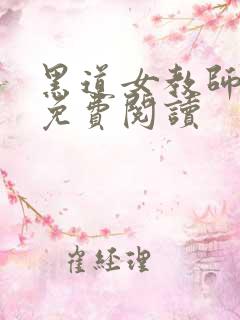 黑道女教師
免費閱讀
崔經理